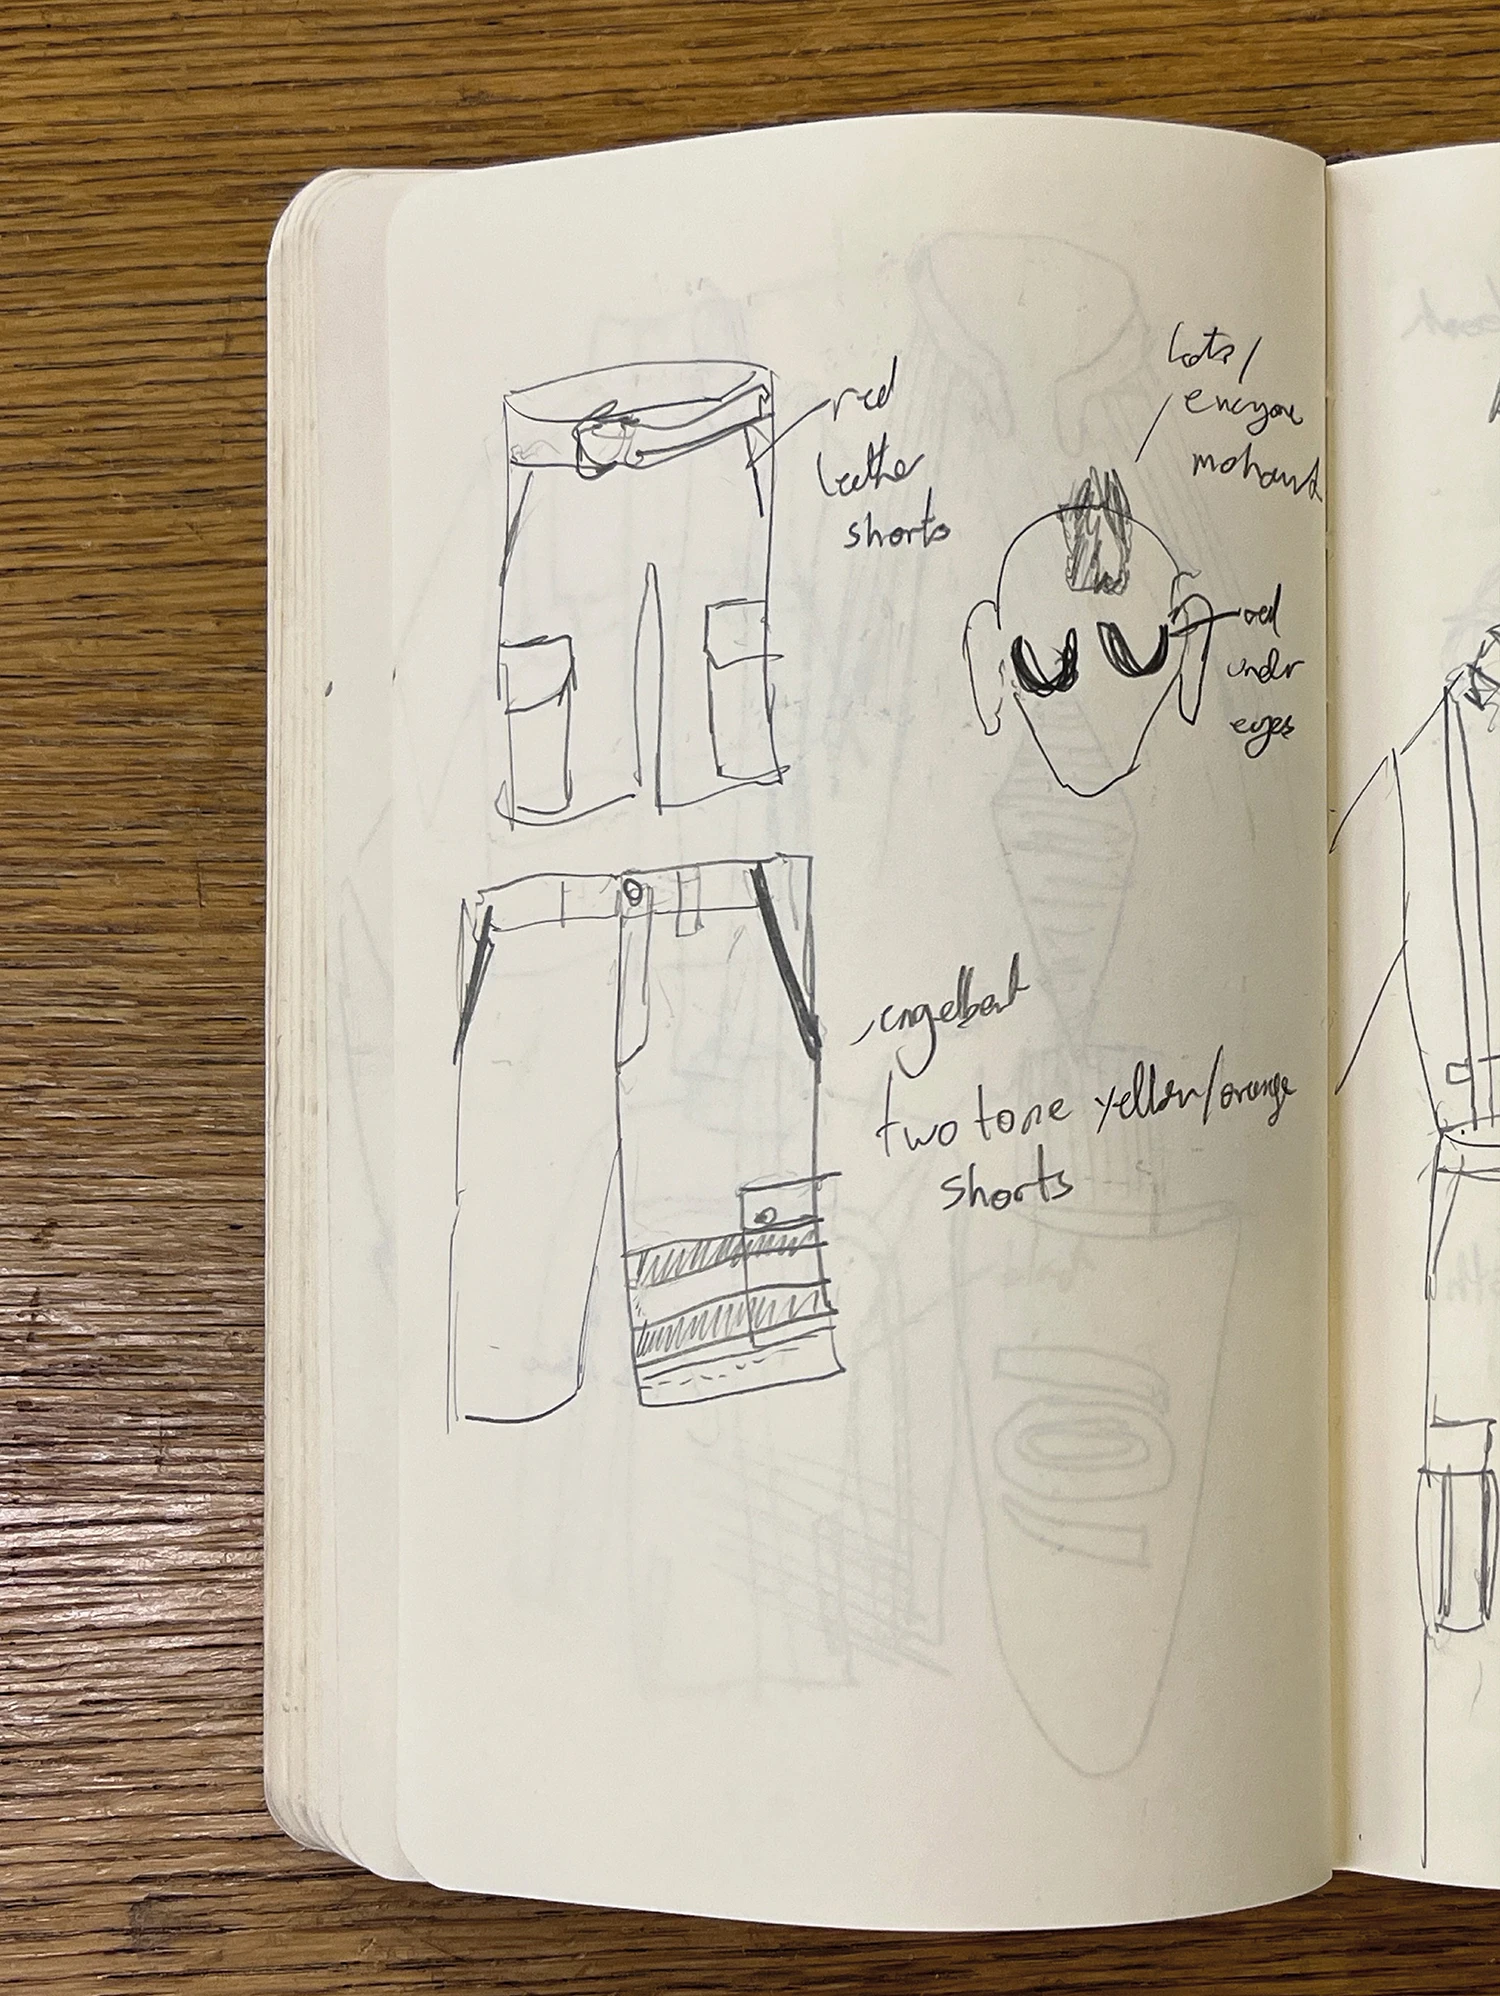 red
leather
shorts
Lots/
everyone
mohawk
red
under
eyes
two tone yellow/orange
shorts